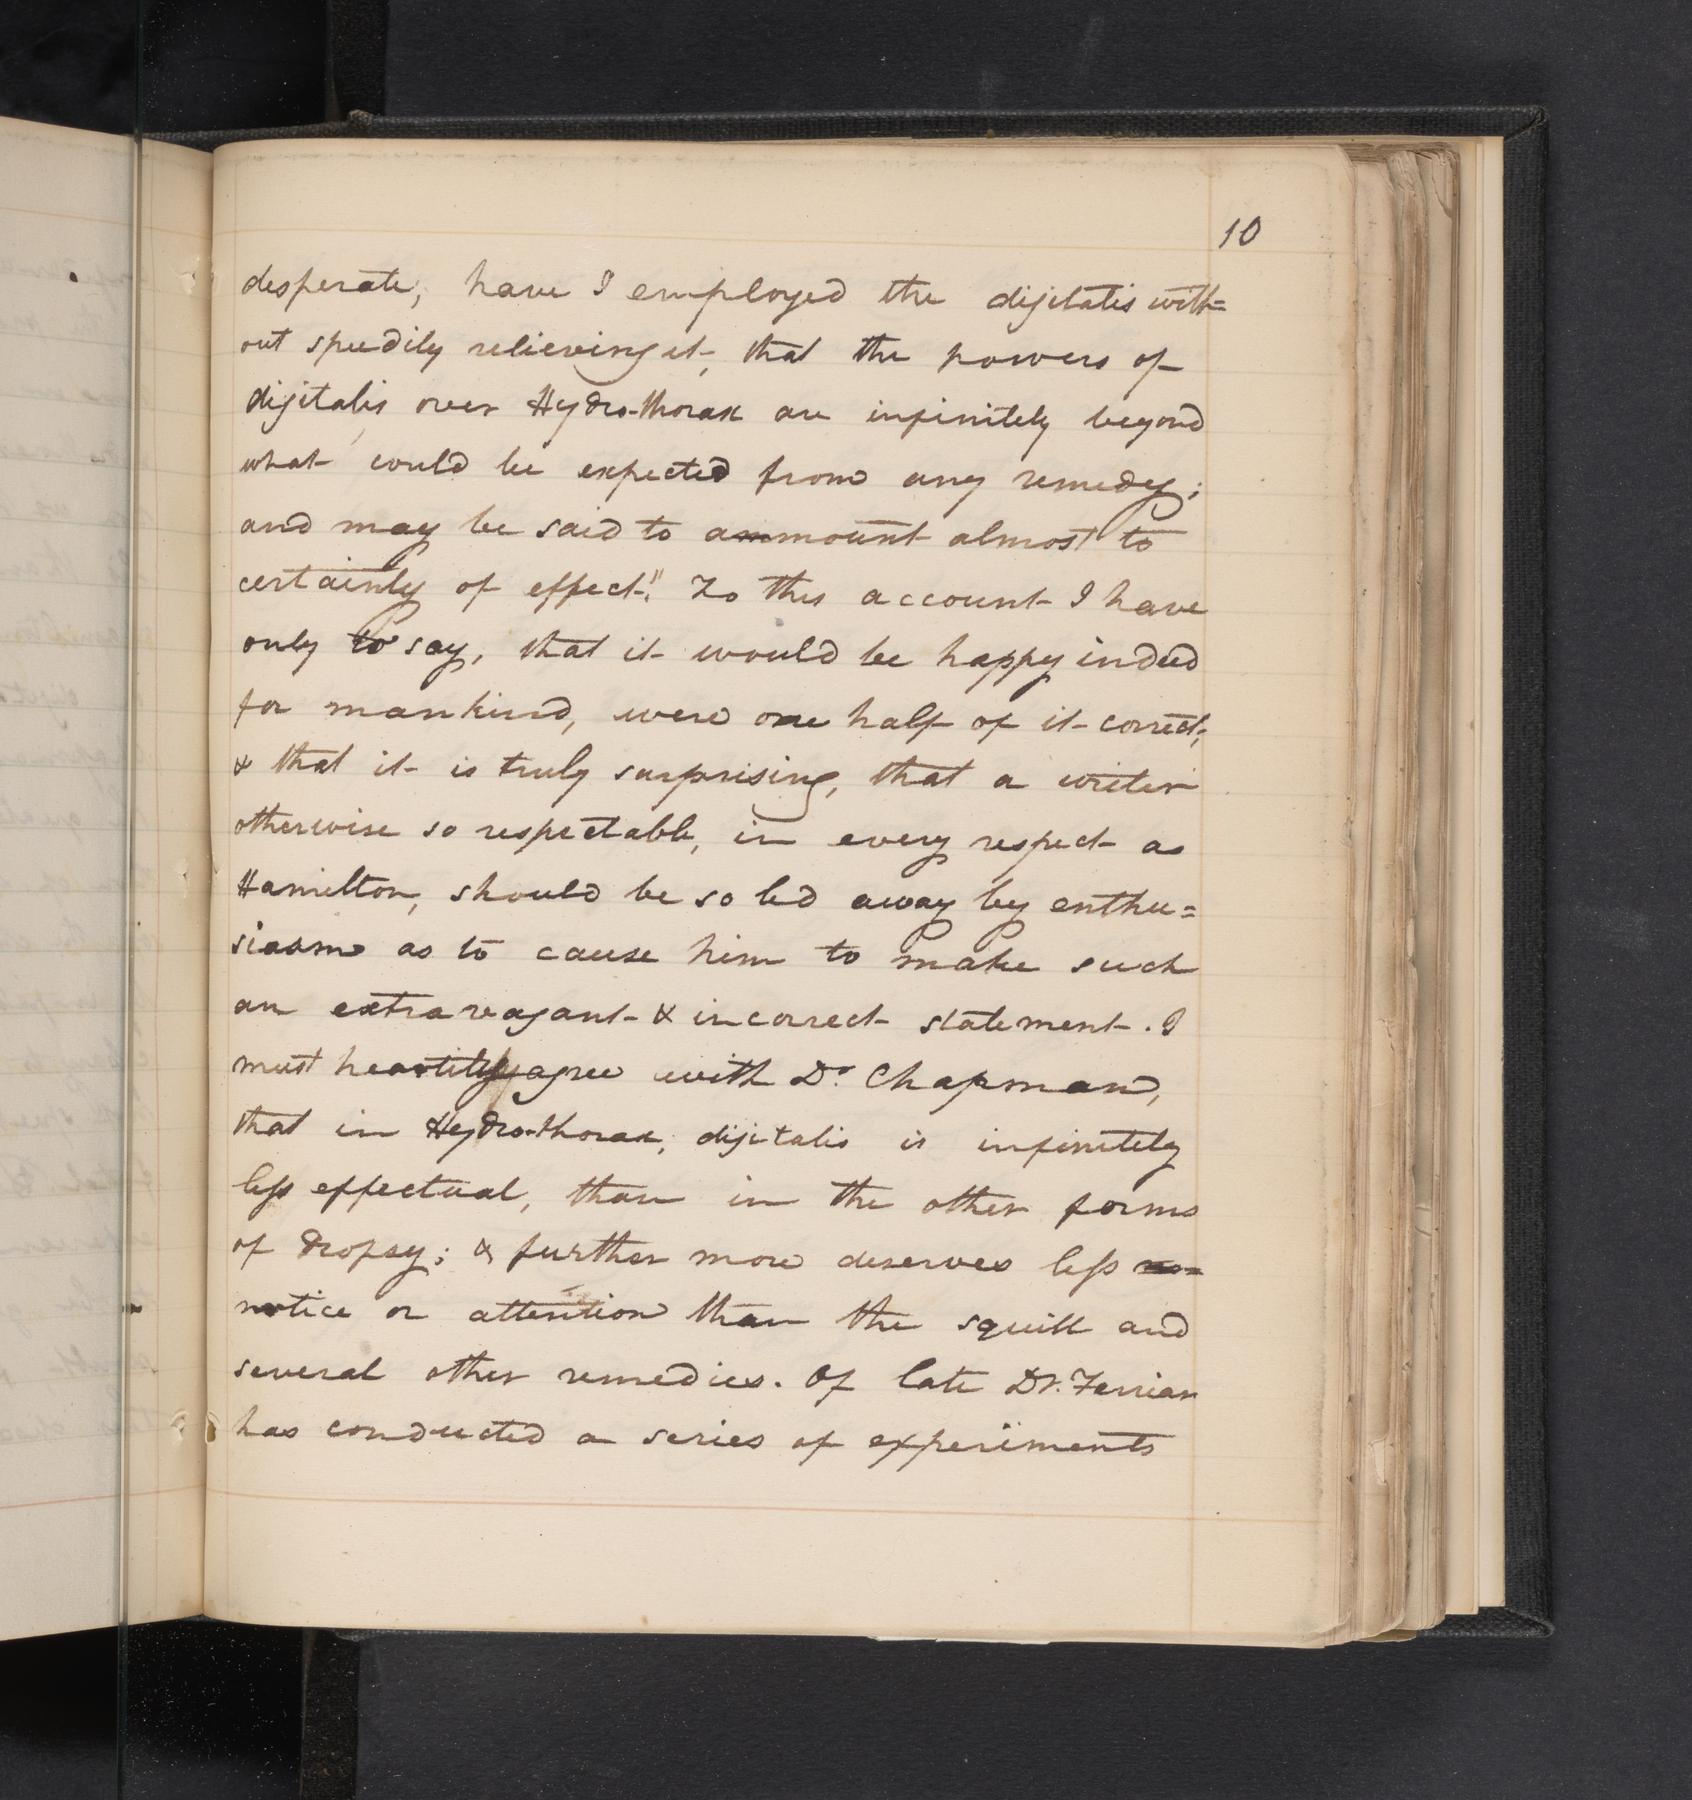 10
desperate, have I employed the digitalis with=
out speedily relieving it, that the powers of
digitalis over Hydro-thorax are infinitely beyond
what could be expected from any remedy;
and may be said to ammount almost to
certainly of effect." To this account I have
only to say, that it would be happy indeed
for mankind, were one half of it correct;
& that it is truly surprising, that a writer
otherwise so respectable, in every respect as
Hamilton, should be so led away by enthu=
siasm as to cause him to make such
an extravagant & incorrect statement. I
must heartily agree with Dr. Chapman,
that in Hydro-thorax, digitalis is infinitely
less effectual, than in the other forms
of dropsy; & further more deserves less
notice or attention than the squill and
several other remedies. Of late Dr. Ferriar
has conducted a series of experiments